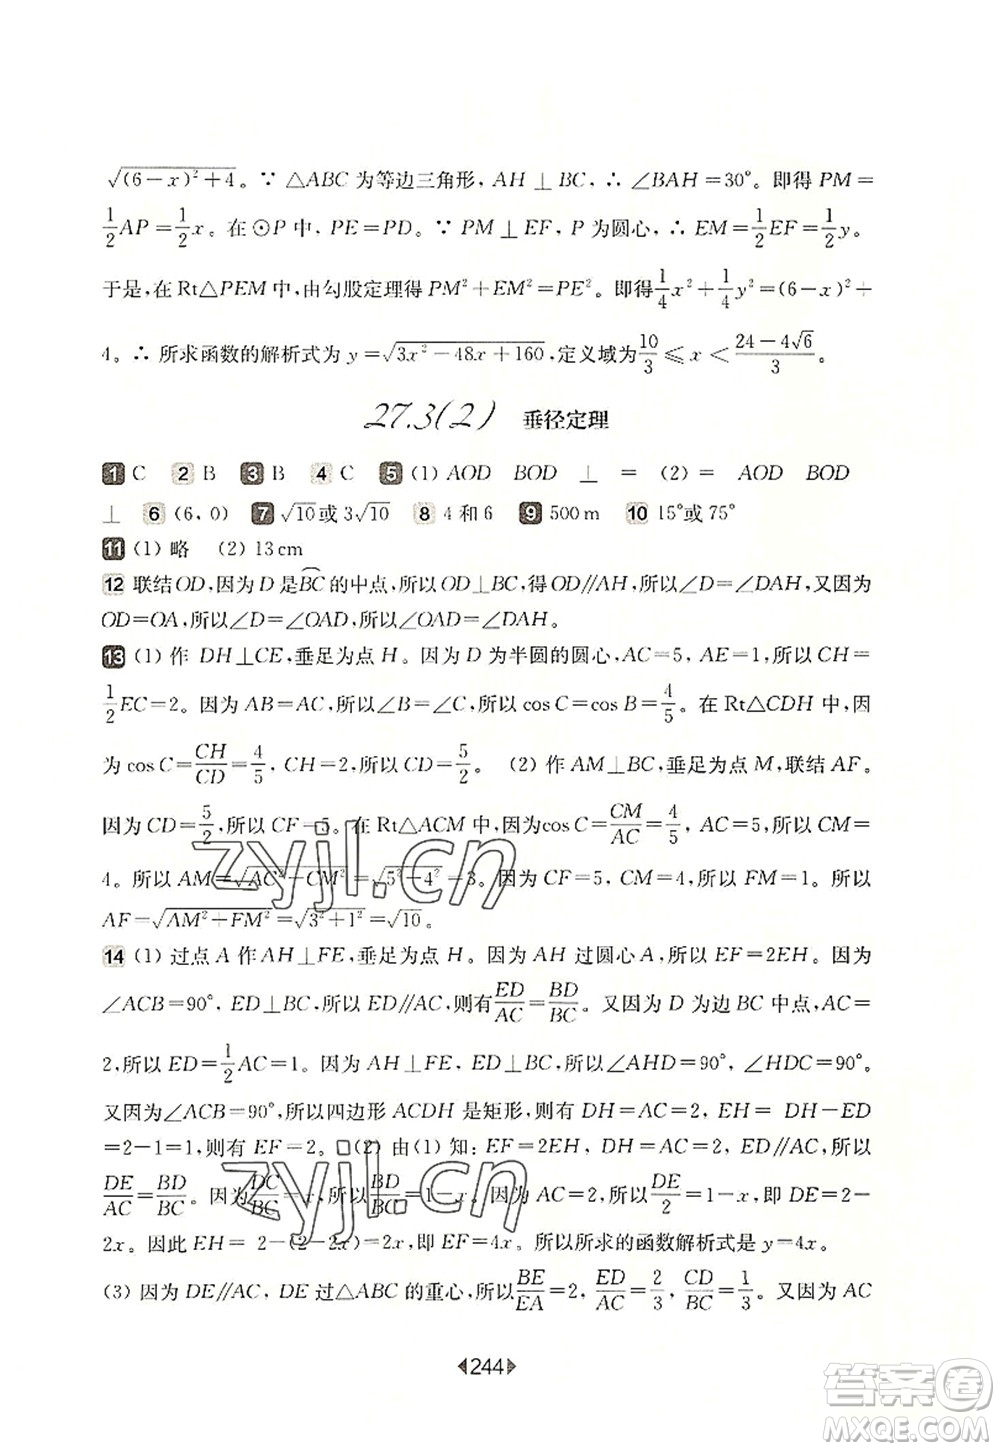 √(6-x)²+4。∵ △ABC 为等边三角形，AH⊥BC，∴ ∠BAH=30°。即得 PM=
1/2 AP=1/2 x。在 ⊙P 中，PE=PD。∵ PM⊥EF，P 为圆心，∴ EM=1/2 EF=1/2 y。
于是，在 Rt△PEM 中，由勾股定理得 PM²+EM²=PE²。即得 1/4 x²+1/4 y²=(6-x)²+
4。∴ 所求函数的解析式为 y=√3x²-48x+160，定义域为 10/3≤x<(24-4√6)/3。
27.3(2) 垂径定理
1 C 2 B 3 B 4 C 5 (1) AOD BOD ⊥ = (2) = AOD BOD
⊥ 6 (6，0) 7 √10或 3√10 8 4 和 6 9 500 m 10 15°或 75°
11 (1) 略 (2) 13 cm
12 联结OD，因为 D 是BC 的中点，所以 OD⊥BC，得 OD∥AH，所以∠D=∠DAH，又因为
OD=OA，所以∠D=∠OAD，所以∠OAD=∠DAH。
13 (1) 作 DH⊥CE，垂足为点 H。因为 D 为半圆的圆心，AC=5，AE=1，所以 CH=
1/2 EC=2。因为 AB=AC，所以∠B=∠C，所以 cos C=cos B=4/5。在 Rt△CDH 中，因
为 cos C=CH/CD=4/5，CH=2，所以 CD=5/2。 (2) 作 AM⊥BC，垂足为点 M，联结 AF。
因为 CD=5/2，所以 CF=5。在 Rt△ACM 中，因为cos C=CM/AC=4/5，AC=5，所以 CM=
4。所以 AM=√AC²-CM²=√5²-4²=3。因为 CF=5，CM=4，所以 FM=1。所以
AF=√AM²+FM²=√3²+1²=√10。
14 (1) 过点 A 作 AH⊥FE，垂足为点 H。因为 AH 过圆心 A，所以 EF=2EH。因为
∠ACB=90°，ED⊥BC，所以 ED∥AC，则有 ED/AC=BD/BC。又因为 D 为边 BC 中点，AC=
2，所以 ED=1/2 AC=1。因为 AH⊥FE，ED⊥BC，所以∠AHD=90°，∠HDC=90°。
又因为∠ACB=90°，所以四边形 ACDH 是矩形，则有 DH=AC=2，EH=DH-ED
=2-1=1，则有 EF=2。(2) 由(1) 知：EF=2EH，DH=AC=2，ED∥AC，所以
DE/AC=BD/BC。因为DC/BC=x，所以BD/BC=1-x。又因为 AC=2，所以DE/2=1-x，即 DE=2-
2x。因此 EH=2-(2-2x)=2x，即 EF=4x。所以所求的函数解析式是 y=4x。
(3) 因为 DE∥AC，DE 过△ABC 的重心，所以BE/EA=2，DE/AC=2/3，CD/BC=1/3。又因为 AC
244
zyjl.cn
zyjl.cn
答案圈
MXQE.COM